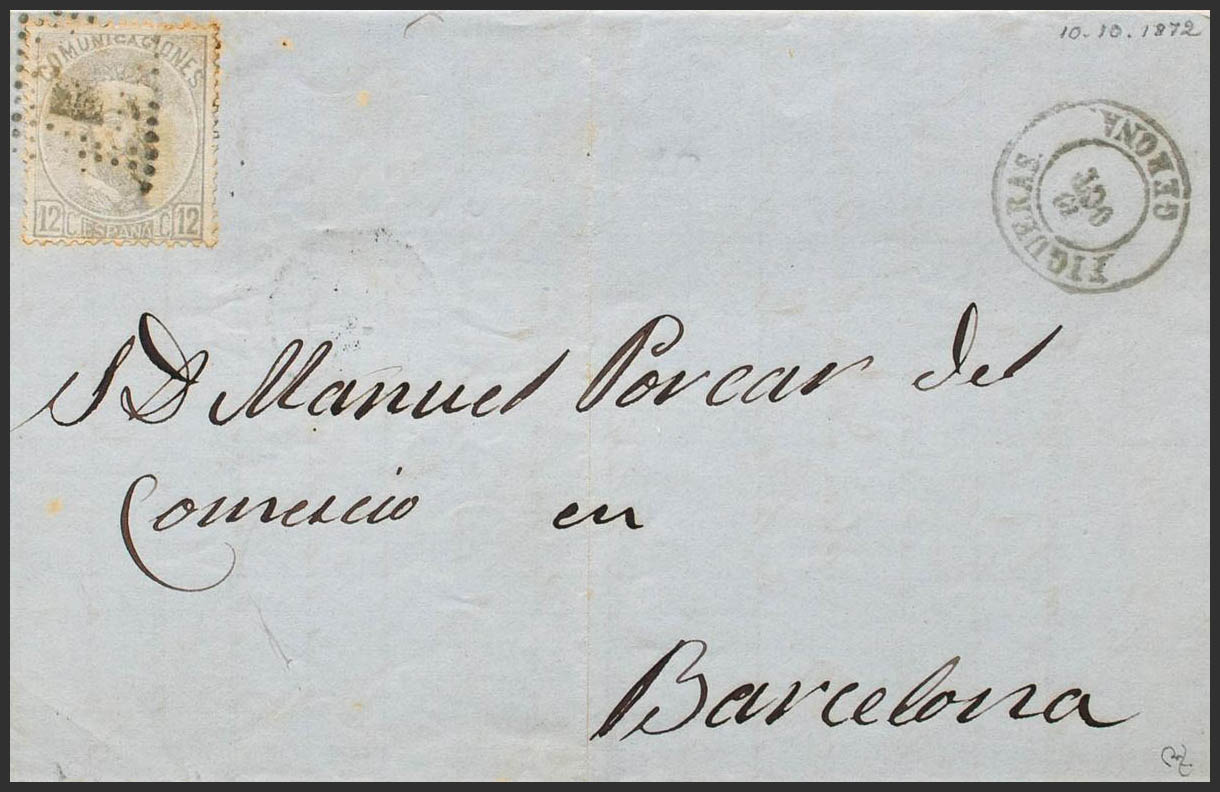 10.10.1872
COMUNICACIONES
12 C. ESPAÑA C. 12
FIGUERAS.
GERONA
OCT
S D Manuel Porcar del
Comercio en
Barcelona